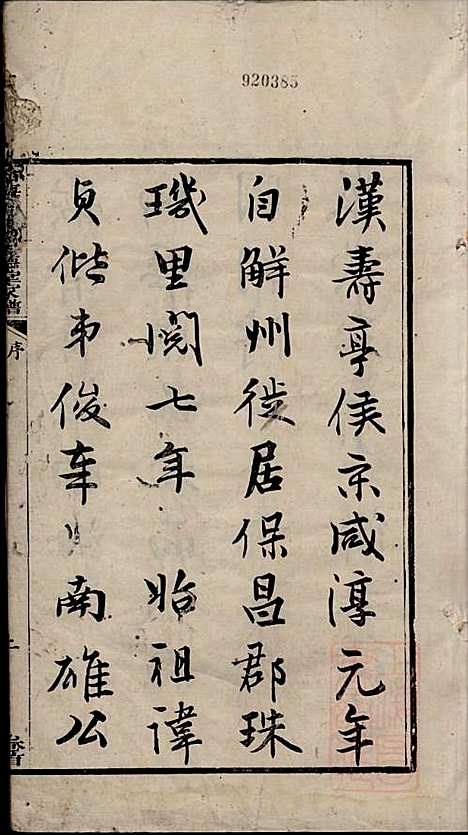 920385
漢壽亭侯宋咸淳元年
自解州徙居保昌郡珠
璣里閱七年 始祖諱
貞偕弟俊率  南雄公
序